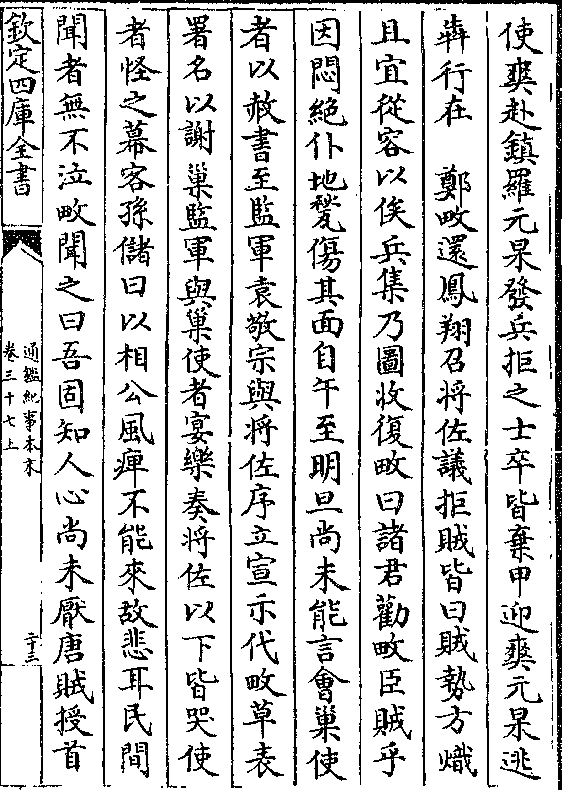 使爽赴鎮羅元杲發兵拒之士卒皆棄甲迎爽元杲逃
犇行在　鄭畋還鳳翔召將佐議拒賊皆曰賊勢方熾
且宜從容以俟兵集乃圖收復畋曰諸君勸畋臣賊乎
因悶絕仆地甃傷其面自午至明旦尚未能言會巢使
者以赦書至監軍袁敬宗與將佐序立宣示代畋草表
署名以謝巢監軍與巢使者宴樂奏將佐以下皆哭使
者怪之幕客孫儲曰以相公風痺不能來故悲耳民間
聞者無不泣畋聞之曰吾固知人心尚未厭唐賊授首
欽定四庫全書
通鑑紀事本末
卷三十七上
二十三